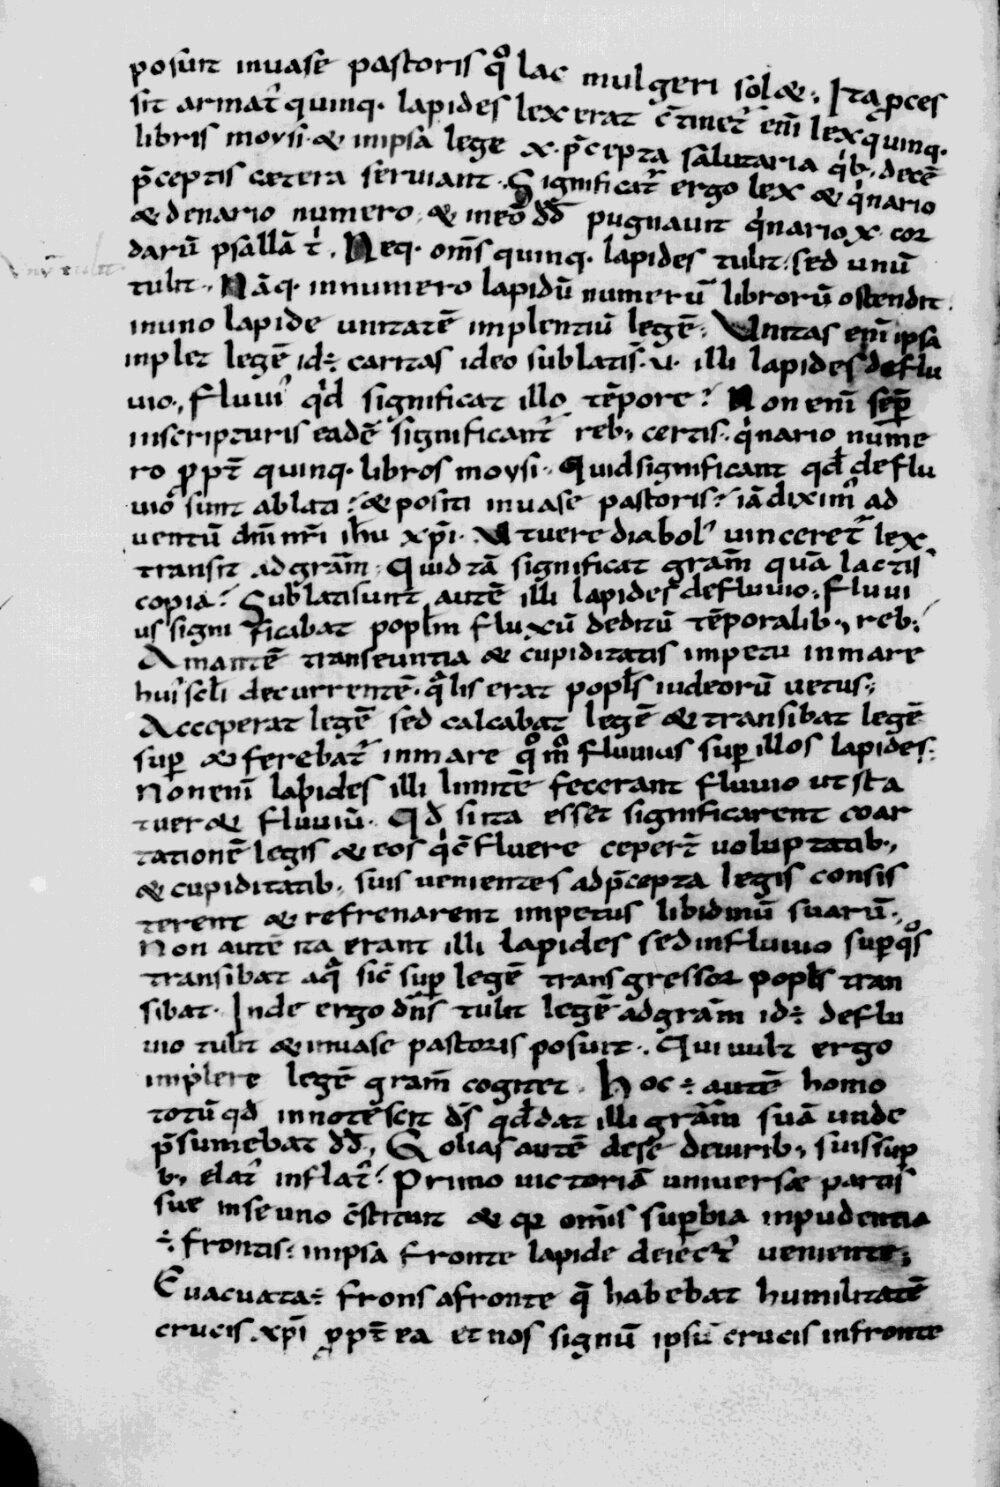 posuit inuase pastoris q̊ lac mulgeri sol&. Ita p̱ces
sit armat᷒ quinq. lapides lex erat c̄tinet᷒ eni̅ lex quinq.
libris moysi. & inipsa lege .x. p̄cepta salutaria qib; dece̅
p̄ceptis cetera seruiant. Significat᷒ ergo lex & qinario
& denario numero. & ideo dd̄ pugnauit qinario x. cor
daru̅ psalla̅t᷒. Neq. om̄s quinq. lapides tulit. sed unu̅
tulit. Na̅q. innumero lapidu̅ numeru̅ libroru̅ ostendit.
inuno lapide unitate̅ implentiu̅ lege̅. Unitas eni̅ ipsa
inplet lege̅ id ÷ caritas ideo sublatis᷒ .u. illi lapides deflu
uio. Fluui᷒ qid significat illo te̅pore? Non eni̅ sep̱
inscripturis eade̅ significant᷒ reb; certis. qinario nume
ro p̱pt̄ quinq. libros moysi. Quid significant qd̄ deflu
uio sunt ablati? & positi inuase pastoris? ia̅ dixim᷒ ad
uentu̅ dn̄i nr̄i ih̄u xp̄i. Ut uere diabol᷒ uinceret᷒ lex
transit adgra̅m. Quid ta̅ significat gra̅m qua̅ lactis
copia? Sublati sunt aute̅ illi lapides defluuio. Fluui
us significabat popl̄m fluxu̅ deditu̅ te̅poralib; reb;
Amante̅ transeuntia & cupiditatis impetu inmare
hui᷒ scl̄i decurrente̅. qlis erat popl̄s iudeoru̅ uetus.
Acceperat lege̅ sed calcabat lege̅ & transibat lege̅
sup̱ & ferebat᷒ inmare q̊m̊ fluuius sup̱ illos lapides.
Non eni̅ lapides illi limite̅ fecerant fluuio ut sta
tuer& fluuiu̅. Qd̄ si ita esset significarent coar
tatione̅ legis & eos qi c̄fluere cepert̄ uoluptatib;
& cupiditatib; suis uenientes adp̄cepta legis consis
terent & refrenarent impetus libidinu̅ suaru̅.
Non aute̅ ita erant illi lapides sed influuio sup̱ q̊s
transibat aqa sic̄ sup̱ lege̅ transgressor popl̄s tran
sibat. Inde ergo dn̄s tulit lege̅ adgra̅m id ÷ deflu
uio tulit & inuase pastoris posuit. Qui uult ergo
implere lege̅ gra̅m cogitet. Hoc ÷ aute̅ homo
totu̅ qd̄ innotescit d̄s qd̄ dat illi gra̅m sua̅ unde
p̄sumebat dd̄. Golias aute̅ dese deuirib; suis sup̱
b; elat᷒ inflat᷒? Primo uictoria̅ uniuersae partis
sue inse uno c̄stituit & qr om̄is sup̱bia inpudentia
÷ frontis. inipsa fronte lapide deiect᷒ ueniente.
Euacuata ÷ frons afronte q̄ habebat humilitate̅
crucis xp̄i p̱pt̄ea et nos signu̅ ipsu̅ crucis infronte